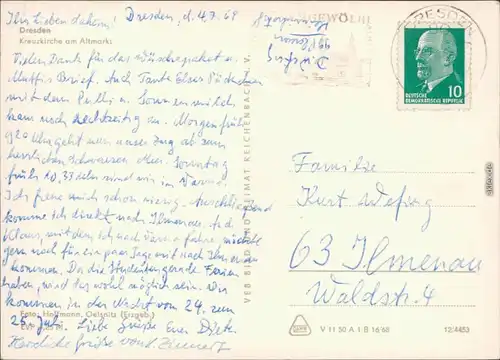 Ihr Lieben daheim! Dresden, d. 4.7.69
Dresden
Kreuzkirche am Altmarkt
Vielen Dank für das Wäschepaket u.
Muttis Brief. Auch Tante Elses Päckchen
mit dem Pulli u. Sonnenmilch
kam noch rechtzeitig an. Morgen früh
geht nun unser Zug ab zum
herrlichen Schwarzen Meer. Sonntag
früh 10.33 Uhr sind wir in Varna.
Ich freue mich schon riesig. Anschließend
komme ich direkt nach Ilmenau. Auch
Claus, mit dem ich nach Varna fahre, möchte
gern noch für ein paar Tage mit nach Ilmenau
kommen. Da die Studenten gerade Ferien
haben, wird das wohl möglich sein. Wir
kommen in der Nacht vom 24. zum
Foto: Hoffmann, Oelsnitz (Erzgeb.)
25. Juli. Liebe Grüße Euer
Herzliche Grüße von
VEB BILD UND HEIMAT REICHENBACH I. V.
DRESDEN
DEUTSCHE
DEMOKRATISCHE REPUBLIK
10
Familie
Kurt
63 Ilmenau
Waldstr. 4
V 11 50 A I B 16/68
12/4453